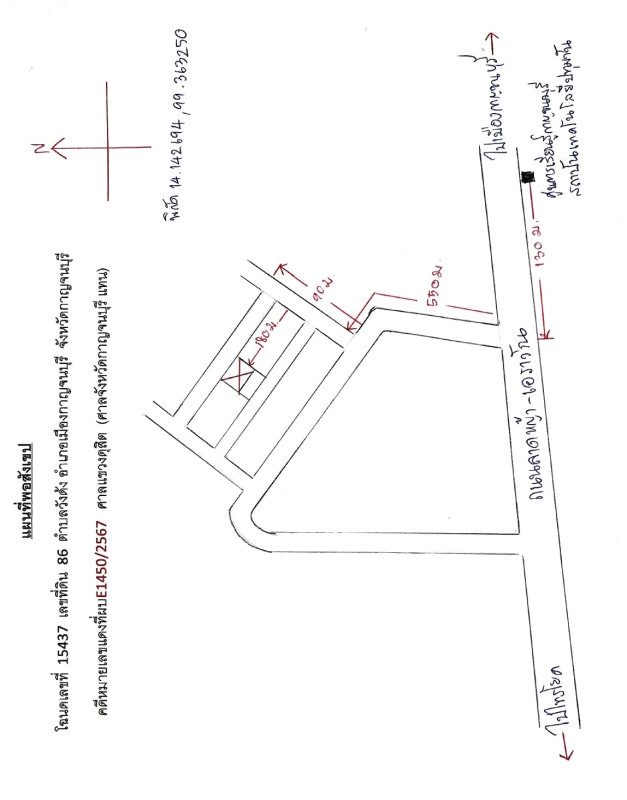 แผนที่พอสังเขป
โฉนดเลขที่ 15437 เลขที่ดิน 86 ตำบลวังด้ง อำเภอเมืองกาญจนบุรี จังหวัดกาญจนบุรี
คดีหมายเลขแดงที่ผบE1450/2567 ศาลแขวงดุสิต (ศาลจังหวัดกาญจนบุรี แทน)
N
พิกัด 14.142694, 99.363250
90 ม.
180 ม.
550 ม.
ไปเมืองกาญจนบุรี
130 ม.
ศูนย์การเรียนรู้กาญจนบุรี
สถาบันเทคโนโลยีปทุมวัน
ถนนลาดหญ้า-เอราวัณ
ไปไทรโยค